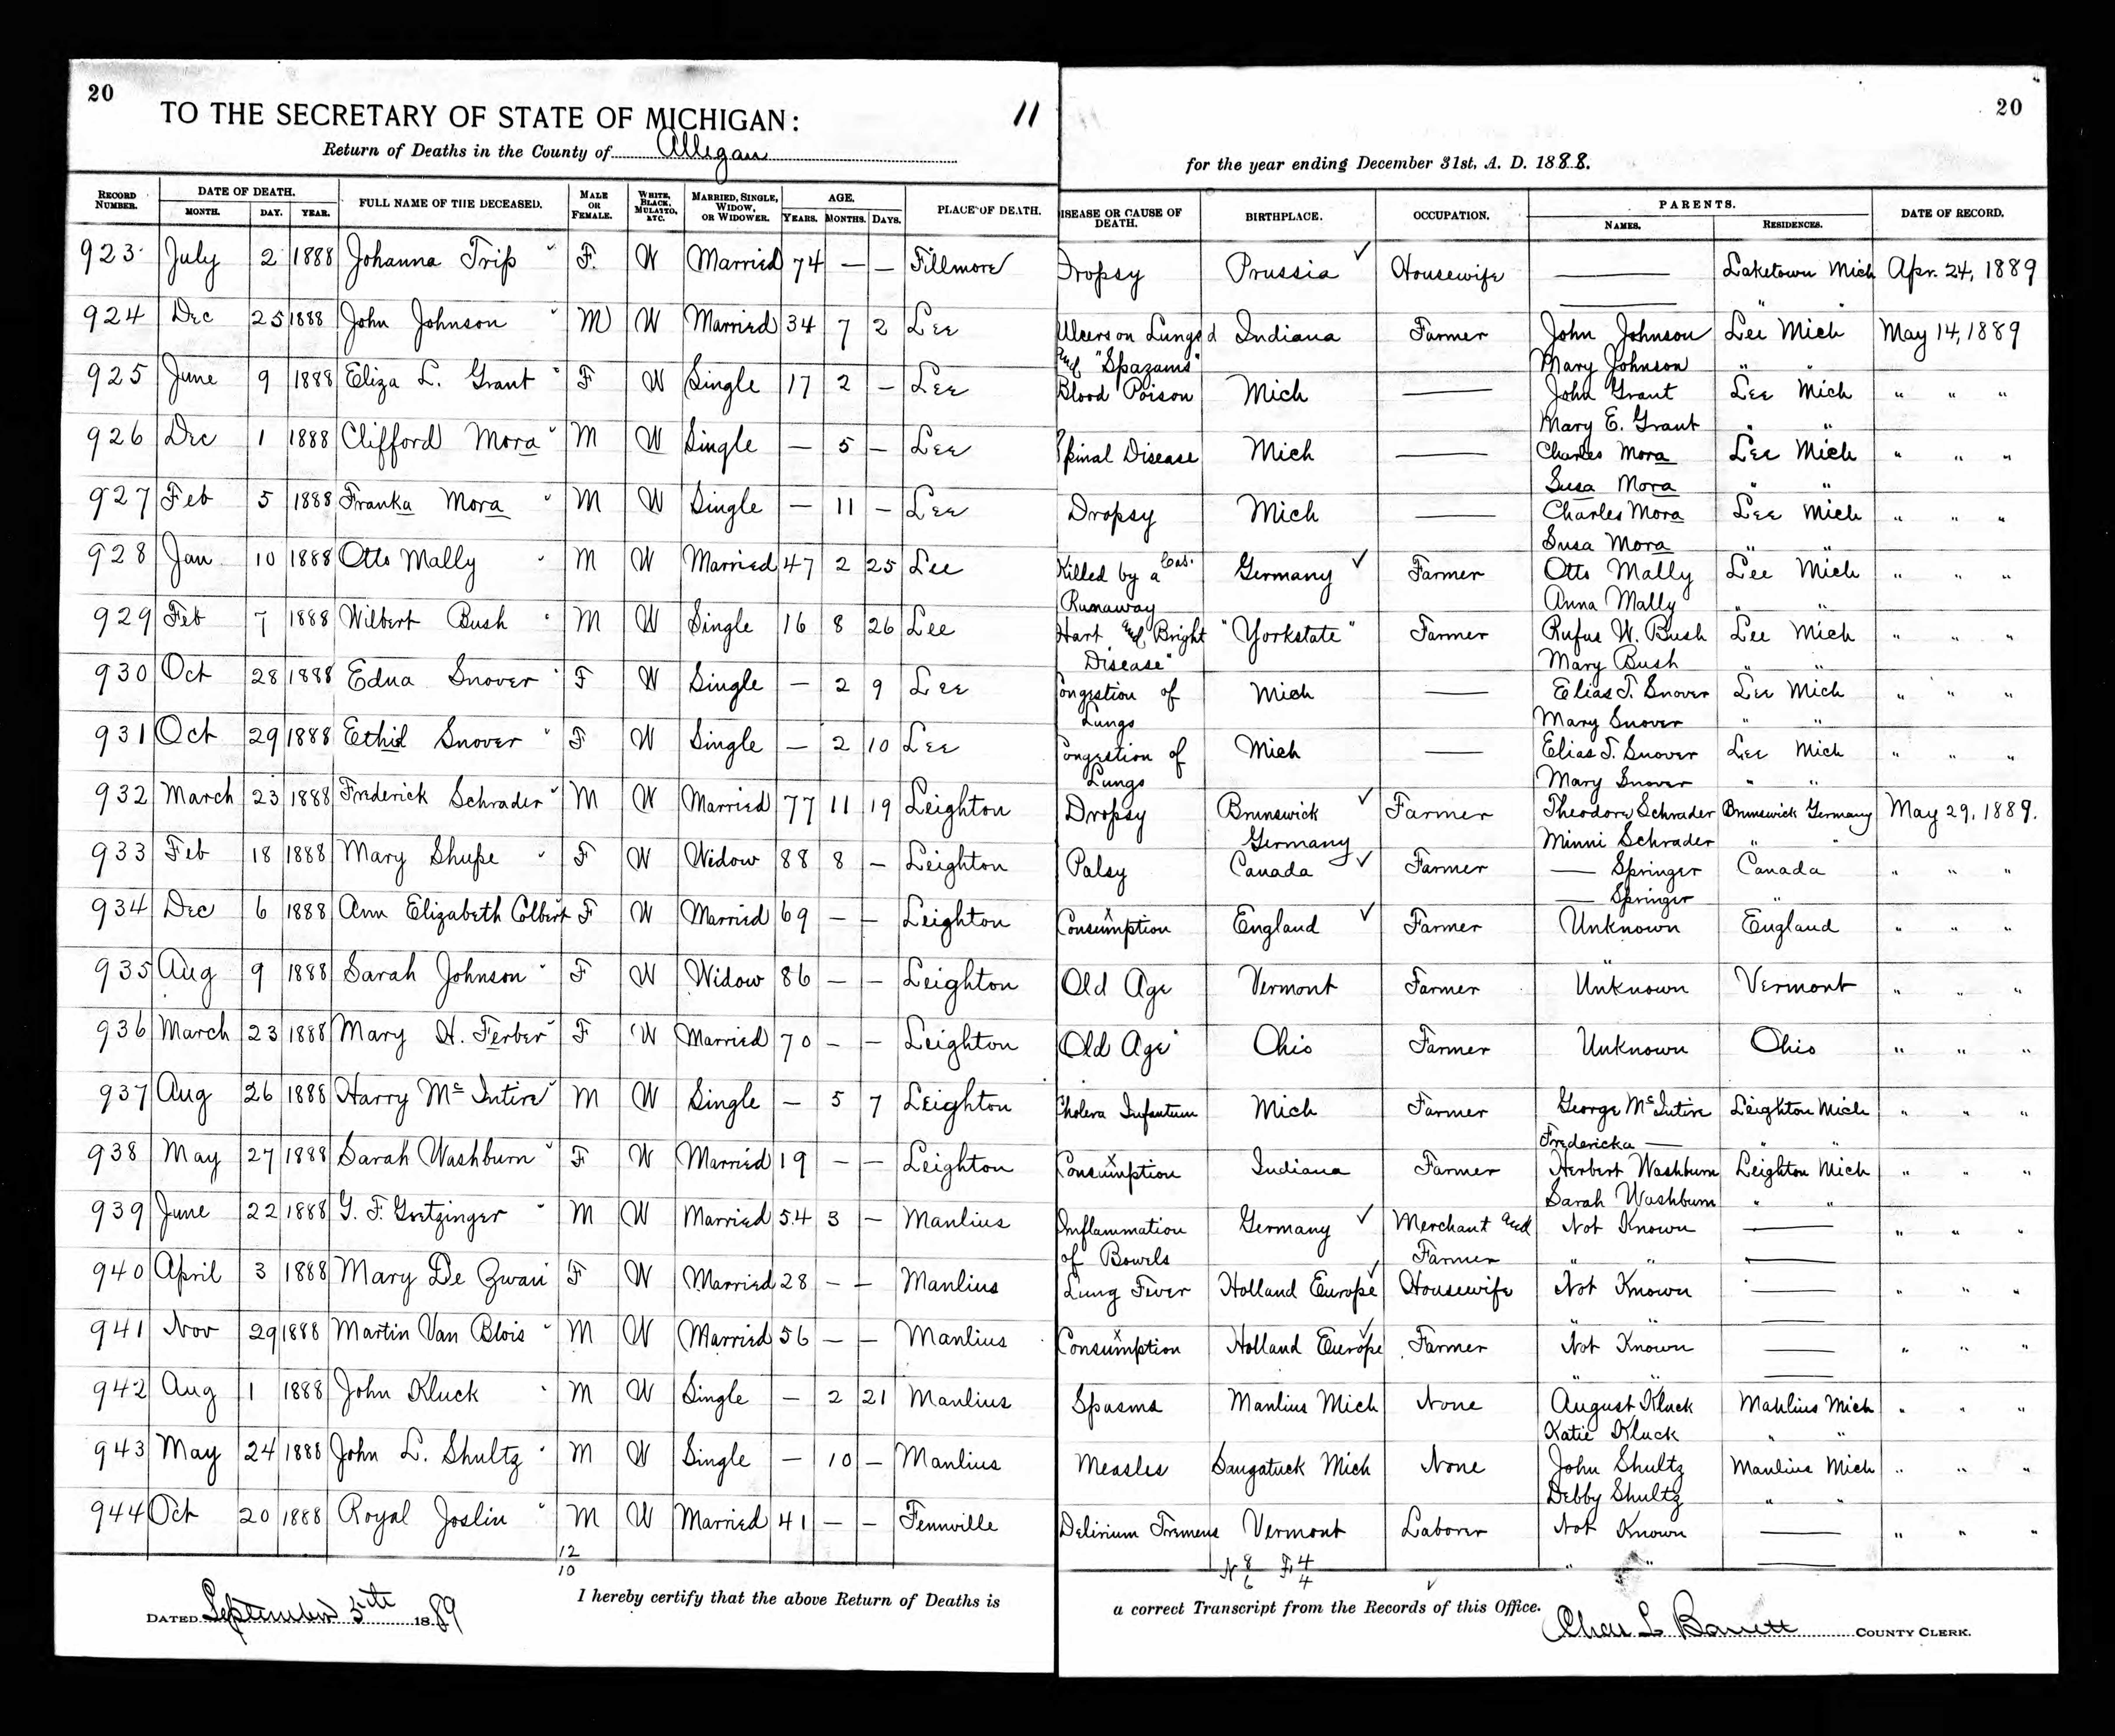 20
TO THE SECRETARY OF STATE OF MICHIGAN:
11
20
Return of Deaths in the County of Allegan
for the year ending December 31st, A. D. 1888.
RECORD NUMBER. DATE OF DEATH. MONTH. DAY. YEAR. FULL NAME OF THE DECEASED. MALE OR FEMALE. WHITE, BLACK, MULATTO, ETC. MARRIED, SINGLE, WIDOW, OR WIDOWER. AGE. YEARS. MONTHS. DAYS. PLACE OF DEATH. ISEASE OR CAUSE OF DEATH. BIRTHPLACE. OCCUPATION. PARENTS. NAMES. RESIDENCES. DATE OF RECORD.
923 July 2 1888 Johanna Trip F. W Married 74 — — Fillmore Dropsy Prussia Housewife — Laketown Mich Apr. 24, 1889
— " "
924 Dec 25 1888 John Johnson M W Married 34 7 2 Lee Ulcers on Lungs Indiana Farmer John Johnson Lee Mich May 14, 1889
and "Spazams" Mary Johnson " "
925 June 9 1888 Eliza L. Grant F W Single 17 2 — Lee Blood Poison Mich — John Grant Lee Mich " " "
Mary E. Grant " "
926 Dec 1 1888 Clifford Mora M W Single — 5 — Lee Spinal Disease Mich — Charles Mora Lee Mich " " "
Susa Mora " "
927 Feb 5 1888 Franka Mora M W Single — 11 — Lee Dropsy Mich — Charles Mora Lee Mich " " "
Susa Mora " "
928 Jan 10 1888 Otto Mally M W Married 47 2 25 Lee Killed by a Germany Farmer Otto Mally Lee Mich " " "
Runaway Anna Mally " "
929 Feb 7 1888 Wilbert Bush M W Single 16 8 26 Lee Hart and Bright "Yorkstate" Farmer Rufus W. Bush Lee Mich " " "
Disease" Mary Bush " "
930 Oct 28 1888 Edna Snover F W Single — 2 9 Lee ongestion of Mich — Elias T. Snover Lee Mich " " "
Lungs Mary Snover " "
931 Oct 29 1888 Ethid Snover F W Single — 2 10 Lee Congestion of Mich — Elias T. Snover Lee Mich " " "
Lungs Mary Snover " "
932 March 23 1888 Frederick Schrader M W Married 77 11 19 Leighton Dropsy Brunswick Farmer Theodore Schrader Brunswick Germany May 29, 1889.
Germany Minni Schrader " "
933 Feb 18 1888 Mary Shupe F W Widow 88 8 — Leighton Palsy Canada Farmer — Springer Canada " " "
— Springer "
934 Dec 6 1888 Ann Elizabeth Colbert F W Married 69 — — Leighton Consumption England Farmer Unknown England " " "
"
935 Aug 9 1888 Sarah Johnson F W Widow 86 — — Leighton Old Age Vermont Farmer Unknown Vermont " " "
936 March 23 1888 Mary H. Ferber F W Married 70 — — Leighton Old Age Ohio Farmer Unknown Ohio " " "
937 Aug 26 1888 Harry McIntire M W Single — 5 7 Leighton Cholera Infantum Mich Farmer George McIntire Leighton Mich " " "
Fredericka — " "
938 May 27 1888 Sarah Washburn F W Married 19 — — Leighton Consumption Indiana Farmer Herbert Washburn Leighton Mich " " "
Sarah Washburn " "
939 June 22 1888 G. F. Goetzinger M W Married 54 3 — Manlius Inflammation Germany Merchant and Not Known — " " "
of Bowels Farmer " " —
940 April 3 1888 Mary De Zwan F W Married 28 — — Manlius Lung Fever Holland Europe Housewife Not Known — " " "
" " —
941 Nov 29 1888 Martin Van Blois M W Married 56 — — Manlius Consumption Holland Europe Farmer Not Known — " " "
" "
942 Aug 1 1888 John Kluck M W Single — 2 21 Manlius Spasms Manlius Mich None August Kluck Manlius Mich " " "
Katie Kluck " "
943 May 24 1888 John L. Shultz M W Single — 10 — Manlius Measles Saugatuck Mich None John Shultz Manlius Mich " " "
Debby Shultz " "
944 Oct 20 1888 Royal Joslin M W Married 41 — — Fennville Delirium Tremens Vermont Laborer Not Known — " " "
" " —
12
10
N 8 F 4
6 4
DATED September 5th 1889 I hereby certify that the above Return of Deaths is a correct Transcript from the Records of this Office. Chas L Barrett COUNTY CLERK.